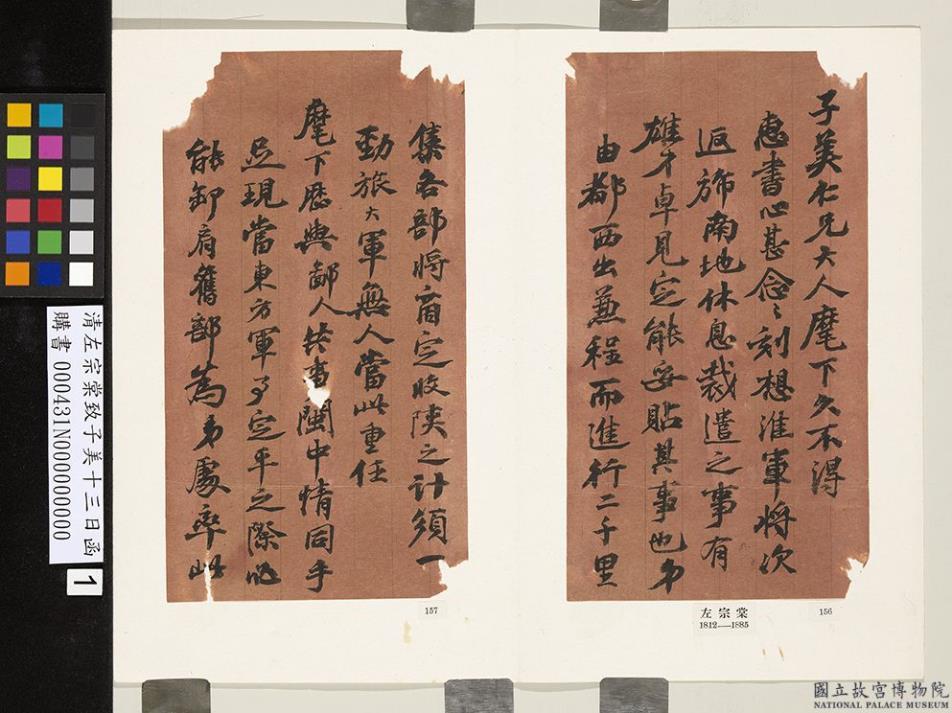 子美仁兄大人麾下久不得
惠書心甚念〻刻想淮軍將次
返旆南地休息裁遣之事有
雄才卓見定能妥貼其事也弟
由都西出兼程而進行二千里
集各部將商定收陝之計須一
勁旅大軍無人當此重任
麾下歷與鄙人共事閩中情同手
足現當東方軍事定平之際必
能卸肩舊部為弟處率此
156
左宗棠
1812—1885
157
清左宗棠致子美十三日函
購書 000431N000000000
1
國立故宮博物院
NATIONAL PALACE MUSEUM